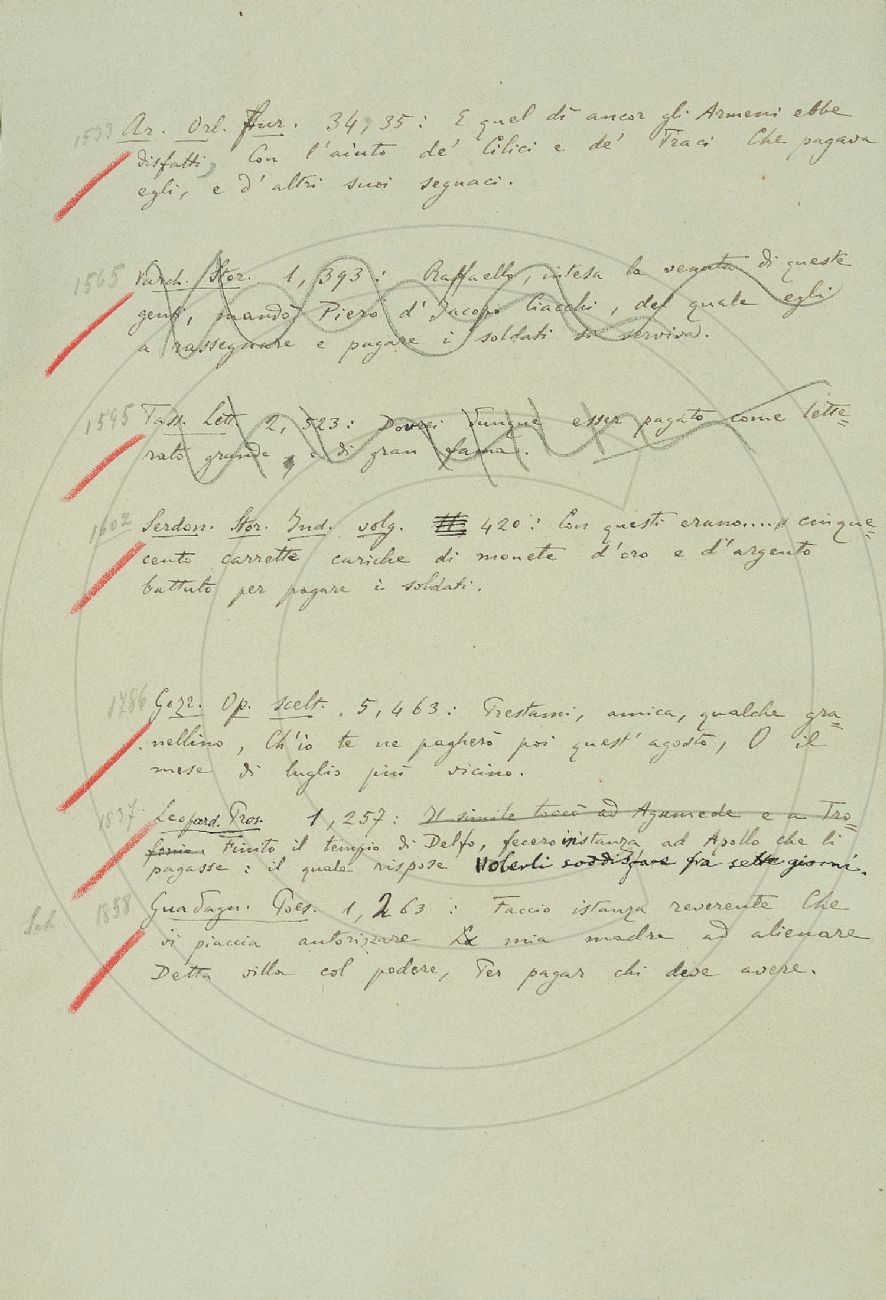 1533 Ar. Orl. Fur. 34, 35: E quel dì ancor gli Armeni ebbe
disfatti, Con l'aiuto de' Cilici e de' Traci Che pagava
egli, e d'altri suoi seguaci.
1565 Varch. Stor. 1, 393: Raffaello, intesa la venuta di queste
genti, mandò Piero d'Iacopo Ciacchi, del quale egli
a rassegnare e pagare i soldati si serviva.
1595 Tass. Lett. 2, 523: Dovrei dunque esser pagato come lette=
rato grande, e di gran fama.
1602 Serdon. Stor. Ind. volg. 420: Con questi erano.... cinque=
cento carrette cariche di monete d'oro e d'argento
battuto per pagare i soldati.
1786 Gozz. Op. scelt. 5, 463: Prestami, amica, qualche gra=
nellino, Ch'io te ne pagherò poi quest'agosto, O il
mese di luglio più vicino.
1837 Leopard. Pros. 1, 257: Il simile toccò ad Agamede e a Tro=
fonio Finito il tempio di Delfo, fecero instanza ad Apollo che li
pagasse: il quale rispose Volerli soddisfare fra sette giorni.
1858 Guadagn. Poes. 1, 263: Faccio istanza reverente Che
vi piaccia autorizzare La mia madre ad alienare
Detta villa col podere, Per pagar chi deve avere.